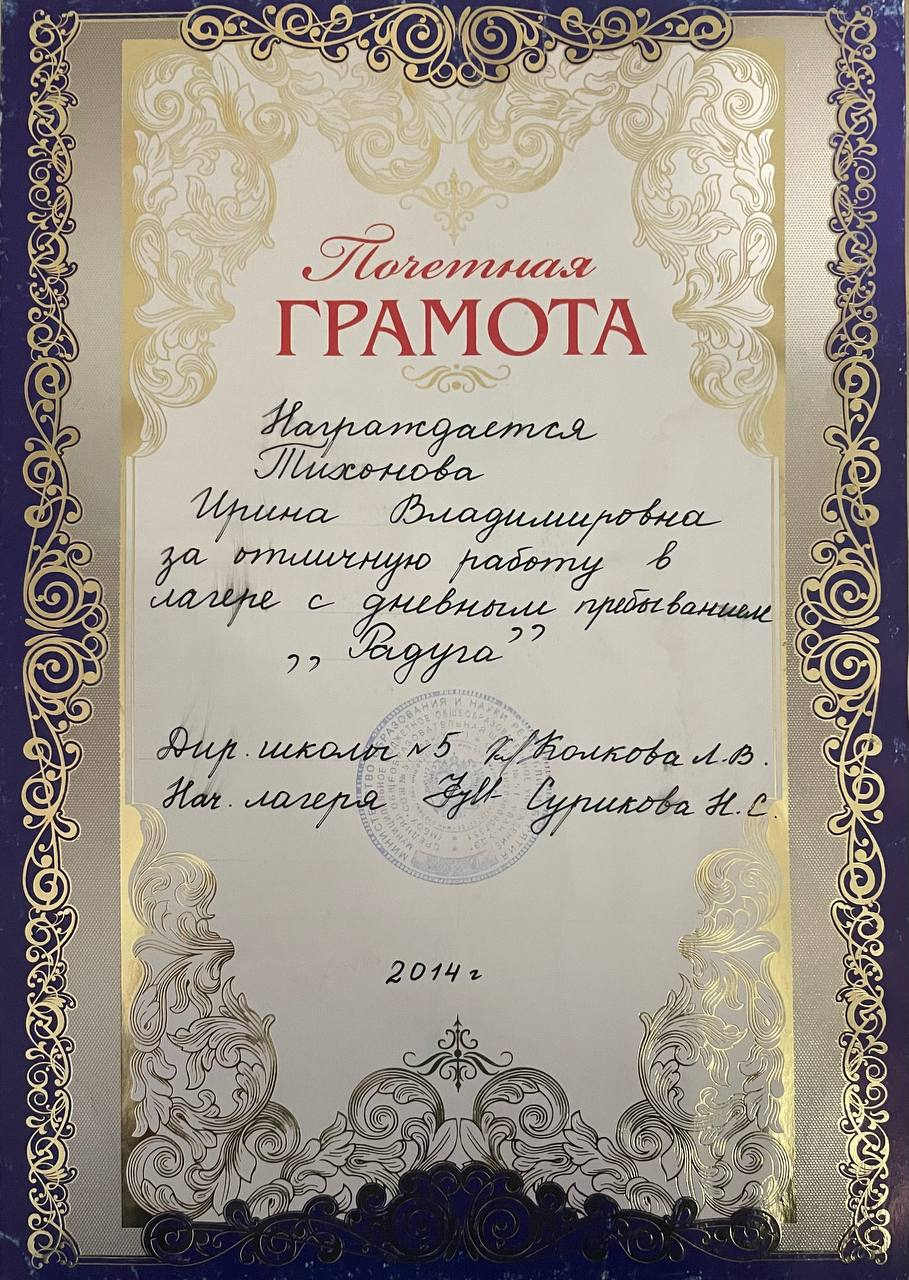 Почетная
ГРАМОТА
Награждается
Тихонова
Ирина Владимировна
за отличную работу в
лагере с дневным пребыванием
,, Радуга ’’
Дир. школы №5 Колкова Л.В.
Нач. лагеря Сурикова Н.С.
2014 г